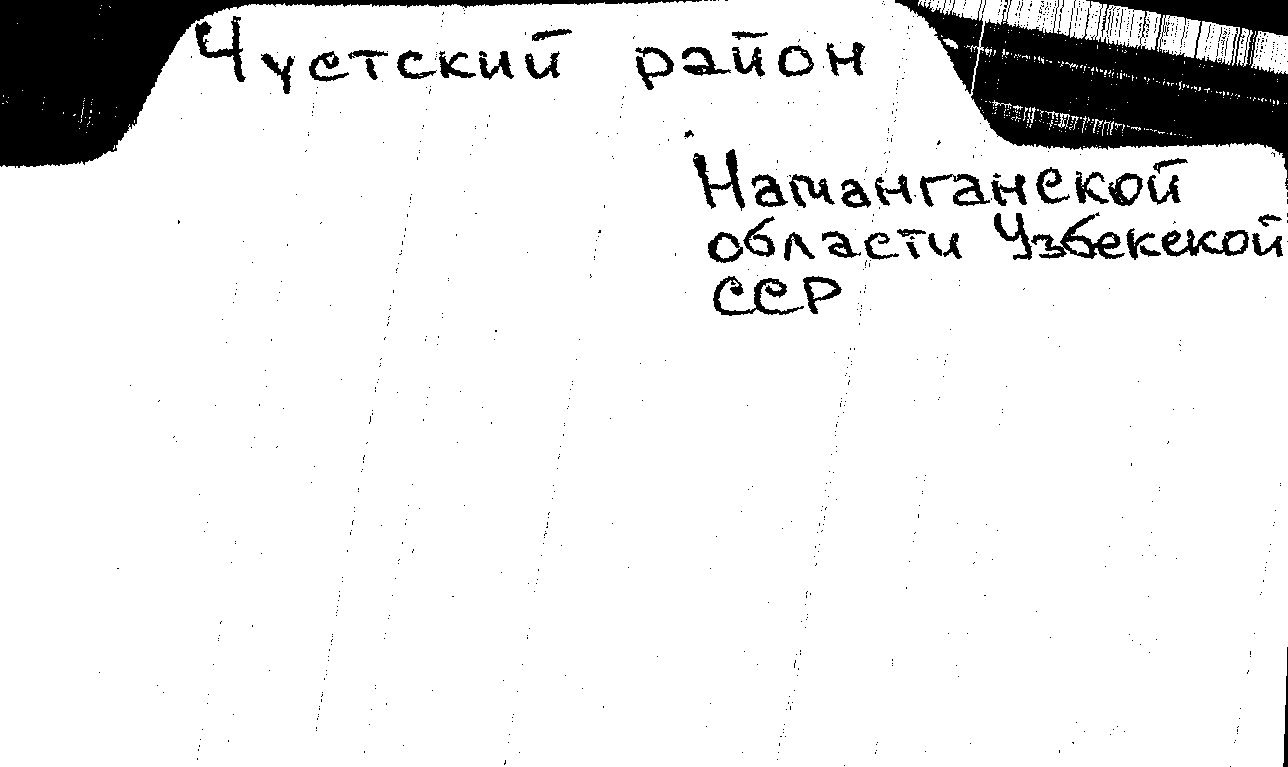 Чустский район
Наманганской
области Узбекской
ССР